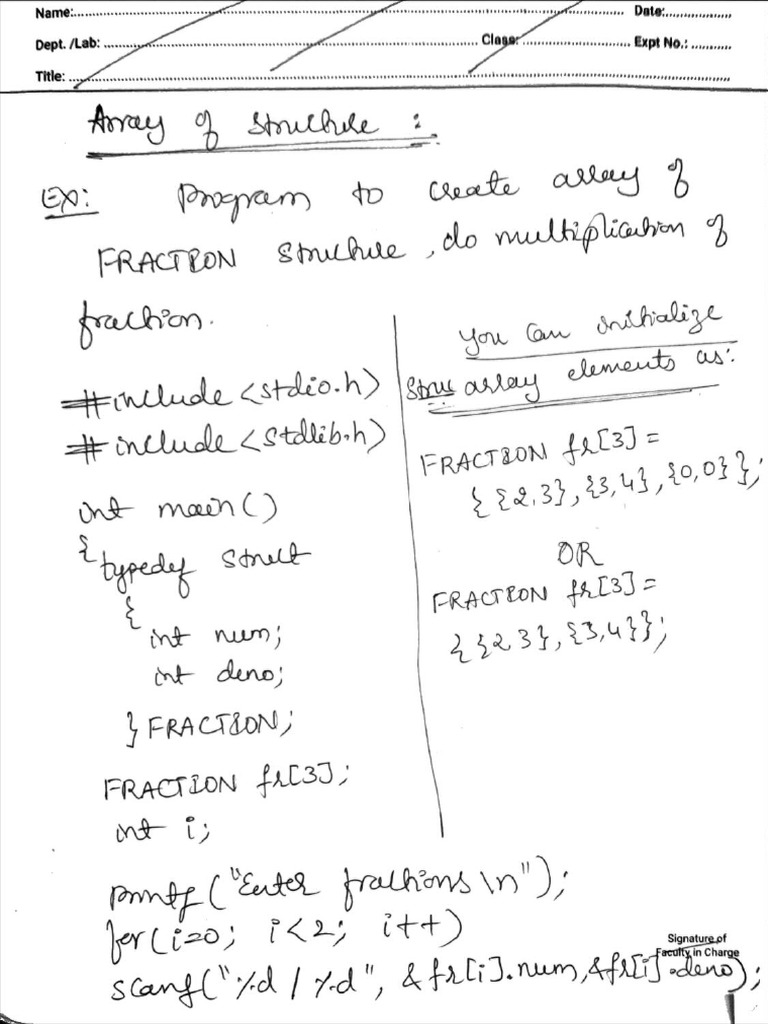 Name:
Date:
Dept. /Lab:
Class:
Expt No.:
Title:
Array of structure :
EX: Program to create array of
FRACTION structure, do multiplication of
fraction.
#include <stdio.h>
#include <stdlib.h>
int main()
{
typedef struct
{
int num;
int deno;
} FRACTION;
FRACTION fr[3];
int i;
you can initialize
struc array elements as:
FRACTION fr[3] =
{ {2,3}, {3,4}, {0,0} };
OR
FRACTION fr[3] =
{ {2,3}, {3,4} };
printf("Enter fractions \n");
for(i=0; i<2; i++)
scanf("%d / %d", &fr[i].num, &fr[i].deno);
Signature of
Faculty in Charge